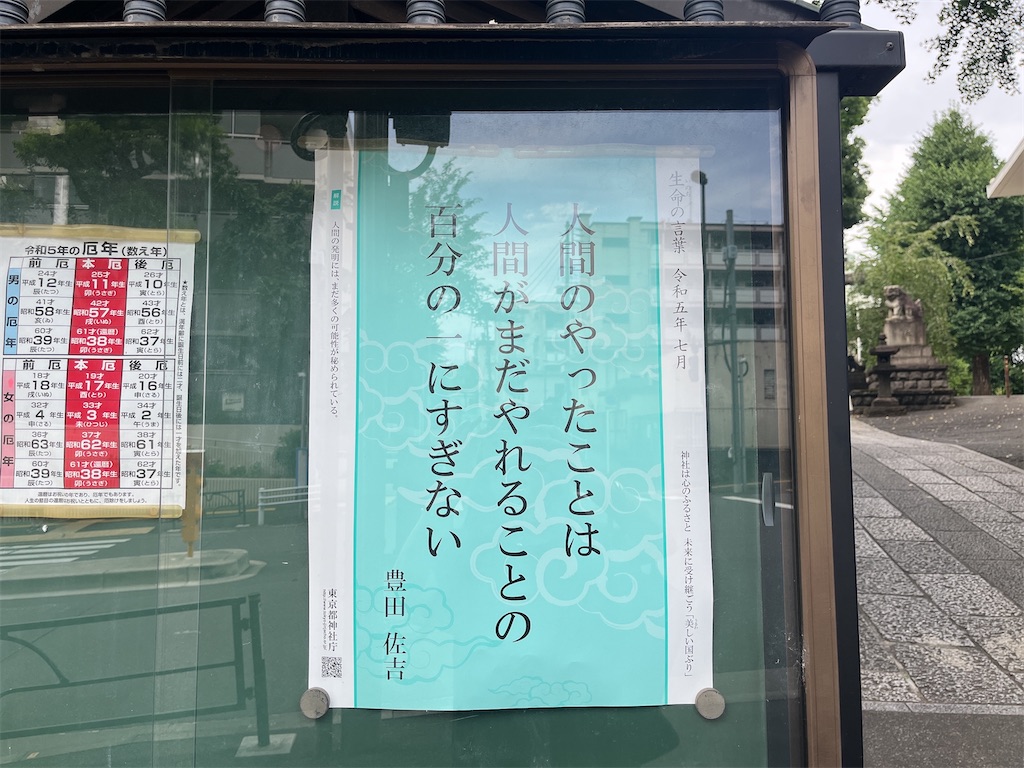 生命の言葉 令和五年七月
神社は心のふるさと 未来に受け継ごう「美しい国ぶり」
人間のやったことは
人間がまだやれることの
百分の一にすぎない
豊田 佐吉
人間の発明には、まだ多くの可能性が秘められている。
東京都神社庁
令和5年の厄年(数え年)
男の厄年
前厄 本厄 後厄
24才 25才 26才
平成12年生 平成11年生 平成10年生
辰(たつ) 卯(うさぎ) 寅(とら)
41才 42才 43才
昭和58年生 昭和57年生 昭和56年生
亥(い) 戌(いぬ) 酉(とり)
60才 61才(還暦) 62才
昭和39年生 昭和38年生 昭和37年生
辰(たつ) 卯(うさぎ) 寅(とら)
女の厄年
前厄 本厄 後厄
18才 19才 20才
平成18年生 平成17年生 平成16年生
戌(いぬ) 酉(とり) 申(さる)
32才 33才 34才
平成4年生 平成3年生 平成2年生
申(さる) 未(ひつじ) 午(うま)
36才 37才 38才
昭和63年生 昭和62年生 昭和61年生
辰(たつ) 卯(うさぎ) 寅(とら)
60才 61才(還暦) 62才
昭和39年生 昭和38年生 昭和37年生
辰(たつ) 卯(うさぎ) 寅(とら)